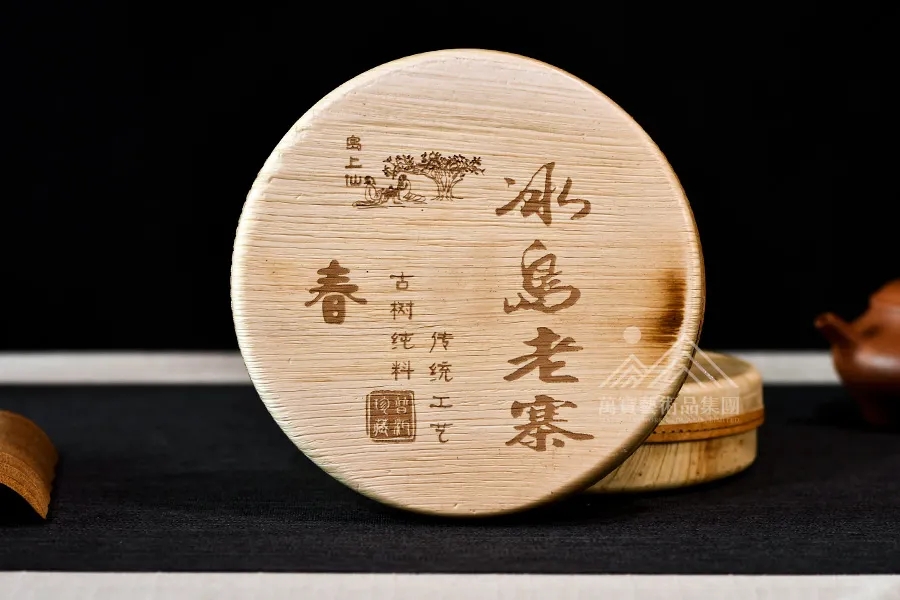 冰島老寨
传统工艺
古树纯料
春
上仙
珍藏
萬寶藝術品集團